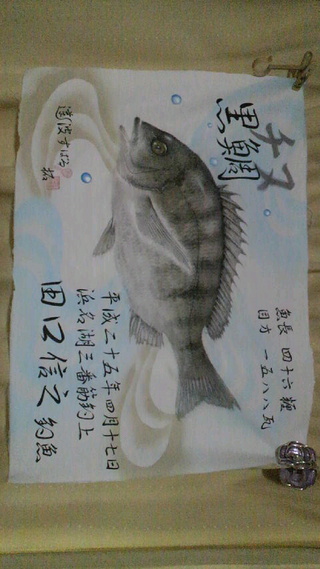 チヌ
黒鯛
魚長 四十六糎
目方 一五八八瓦
平成二十五年四月十七日
浜名湖三番筋釣上
田口信之 釣魚
遠波すはる 拓